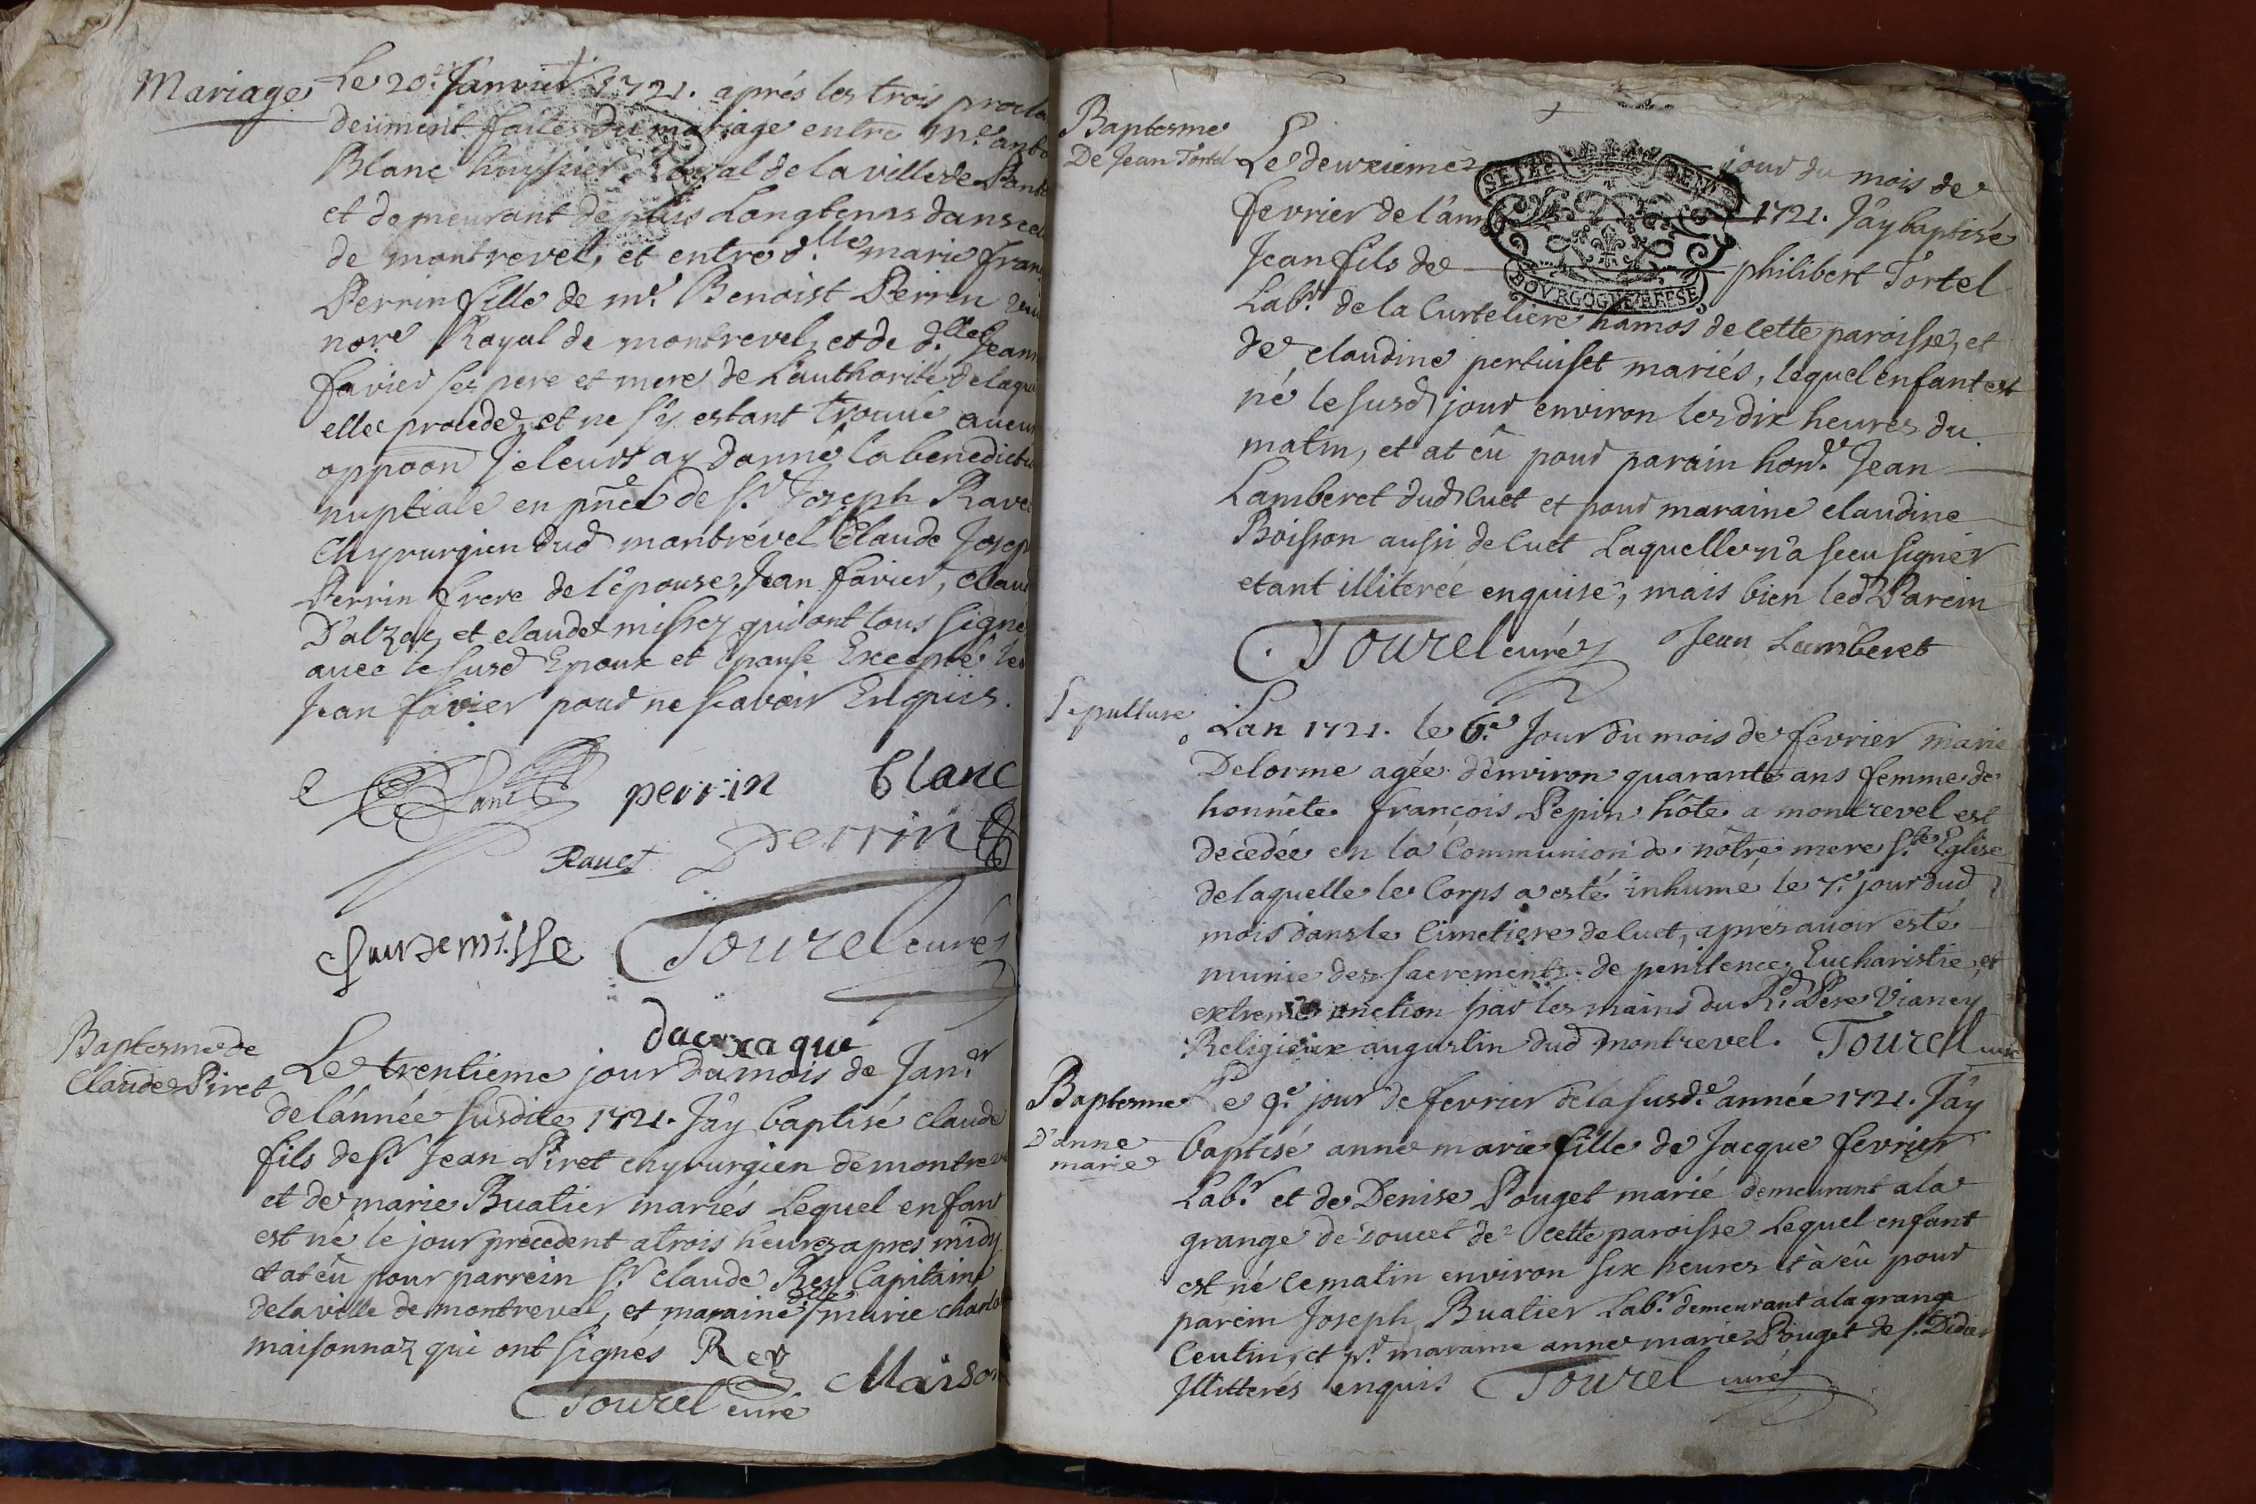 Mariage
Le 20.e Janvier 1721. aprés les trois procla
deüment faites du mariage entre m.e anto
Blanc huissier Royal de la ville de Pont
et demeurant de plus Longtems dans cel
de montrevel, et entre d.lle marie fran
Perrin fille de m.r Benoist Perrin
nore Royal de montrevel, et de d.lle Jeann
favier ses pere et mere de L'authorité de laque
elle procede, et ne s'y estant trouué aucun
oppoon Je leurs ay donné la benedicti
nuptiale en pñce de s.r Joseph Rave
Chyrurgien dud montrevel Claude Josep
Perrin frere de l'épouse, Jean favier, Claud
D'alzac, et claude missey qui ont tous signé
avec le susd Epoux et épouse Excepté led
Jean favier pour ne scavoir Enquis.
perrin blanc
Perrin
Ravet
Tourel curé
Baptesme de
Claude Piret
Le trentiéme jour du mois de Jan.er
de l'année susdite 1721. J'ay baptisé claude
fils de s.r Jean Piret chyrurgien de montrev
et de marie Buatier mariés Lequel enfant
est né le jour precedent a trois heures apres midy
et at eû pour parrein s.r Claude Rey Capitaine
de la ville de montrevel, et maraine d.lle marie charlo
maisonnaz qui ont signés Rey
Maison
Tourel curé
Baptesme
De Jean Tortel
SEIZE DEN
BOVRGOGNE BRESSE
Le deuxieme jour du mois de
fevrier de l'ann 1721. J'ay baptisé
Jean fils de philibert Tortel
Lab.r de la Curteliere hamos de cette paroisse, et
de claudine pertuiset mariés, lequel enfant est
né le susd jour environ les dix heures du
matin, et at eû pour parain hon.e Jean
Lamberet dud Cuet et pour maraine claudine
Boisson aussi de Cuet Laquelle n'a sceu signer
etant illiterée enquise, mais bien led Parein
Tourel curé Jean Lamberet
Sepulture
Lan 1721. le 6.e Jour du mois de fevrier marie
Delorme agée d'environ quarante ans femme de
honnête françois Pepin hôte a montrevel est
decedée en la Communion de nôtre mere s.te Eglise
de laquelle le Corps a esté inhumé le 7.e jour dud
mois dans le Cimetiere de Cuet, apres auoir esté
munie des sacrements de penitence, Eucharistie, et
extreme onction par les mains du R.d Pere Vianey
Religieux augustin dud montrevel. Tourel curé
Baptesme
D'anne
marie
Le 9.e jour de fevrier de la susd.e année 1721. J'ay
baptisé anne marie fille de Jacque fevrier
Lab.r et de Denise Pouget marié demeurant a la
grange de de cette paroisse Lequel enfant
est né le matin environ six heures et à eû pour
parein Joseph Buatier Lab.r demeurant a la grange
Ceutin, et p.r maraine anne marie Pouget de s.t Didier
Illitterés enquis Tourel curé